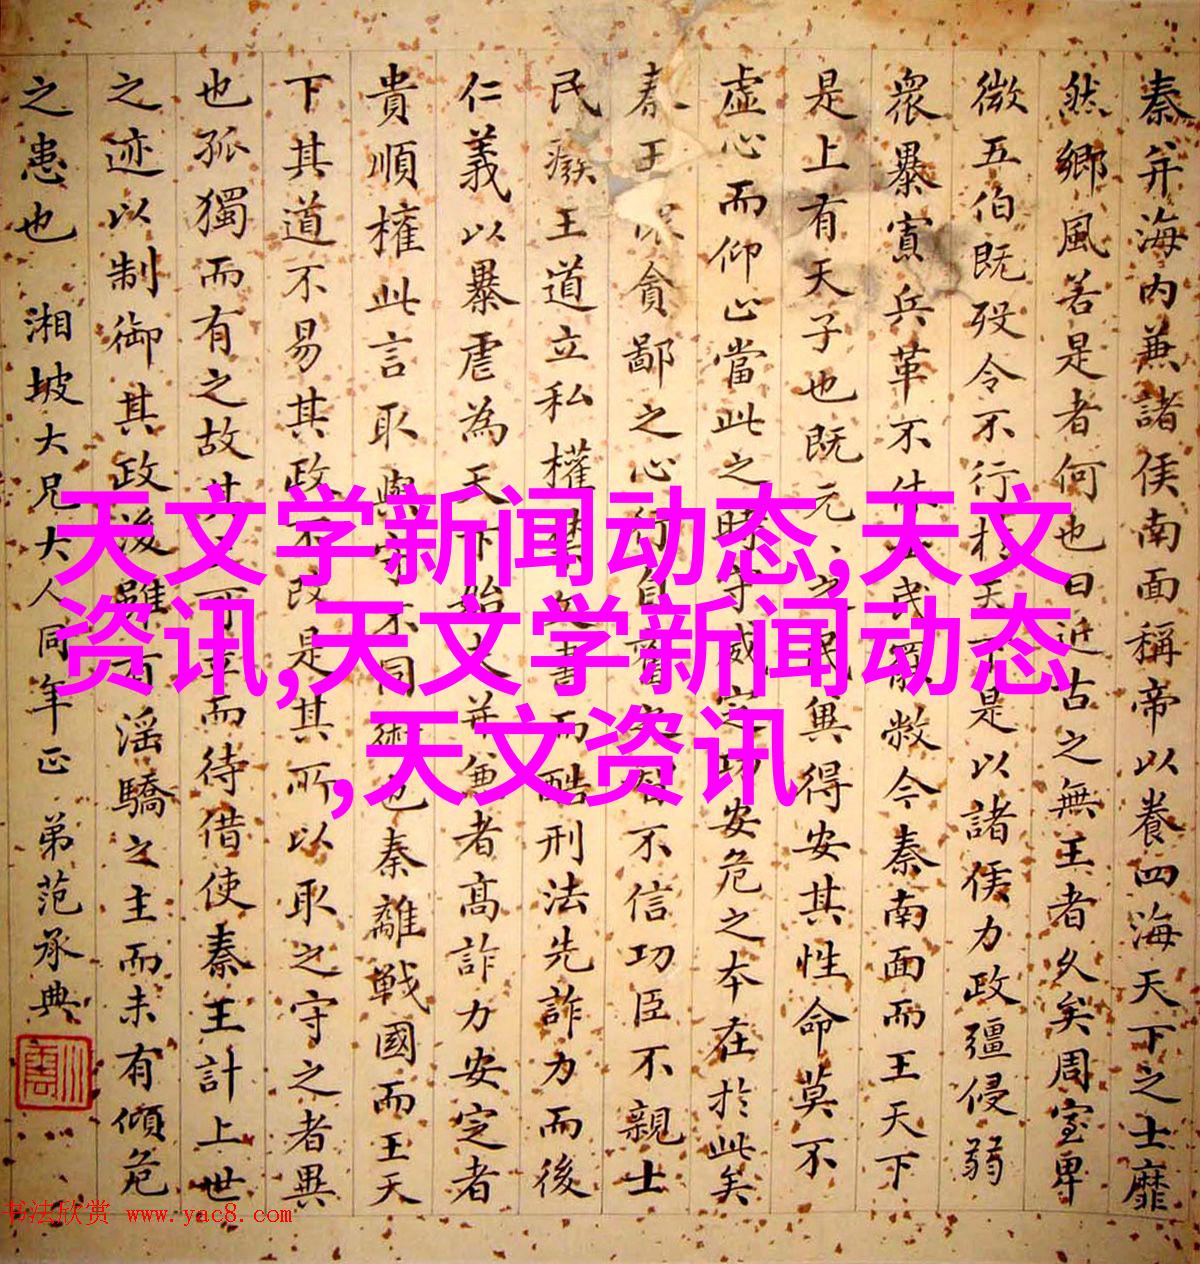 秦并海内兼諸侯南面稱帝以養四海天下之士靡
然鄉風若是者何也曰近古之無王者久矣周室卑
微五伯既歿令不行於天下是以諸侯力政彊侵弱
衆暴寡兵革不休士民罷敝今秦南面而王天下
是上有天子也既元元之民兾得安其性命莫不
虛心而仰上當此之時守威定功安危之本在於此矣
秦王懷貪鄙之心行自奮之智不信功臣不親士
民廢王道立私權禁文書而酷刑法先詐力而後
仁義以暴虐為天下始夫并兼者高詐力安定者
貴順權此言取與守不同術也秦離戰國而王天
下其道不易其政不改是其所以取之守之者異
也孤獨而有之故其亡可立而待借使秦王計上世
之迹以制御其政後雖有滛驕之主而未有傾危
之患也
湘坡大兄大人同年正 弟范承典
天文学新闻动态,天文
资讯,天文学新闻动态
,天文资讯
书法欣赏 www.yac8.com